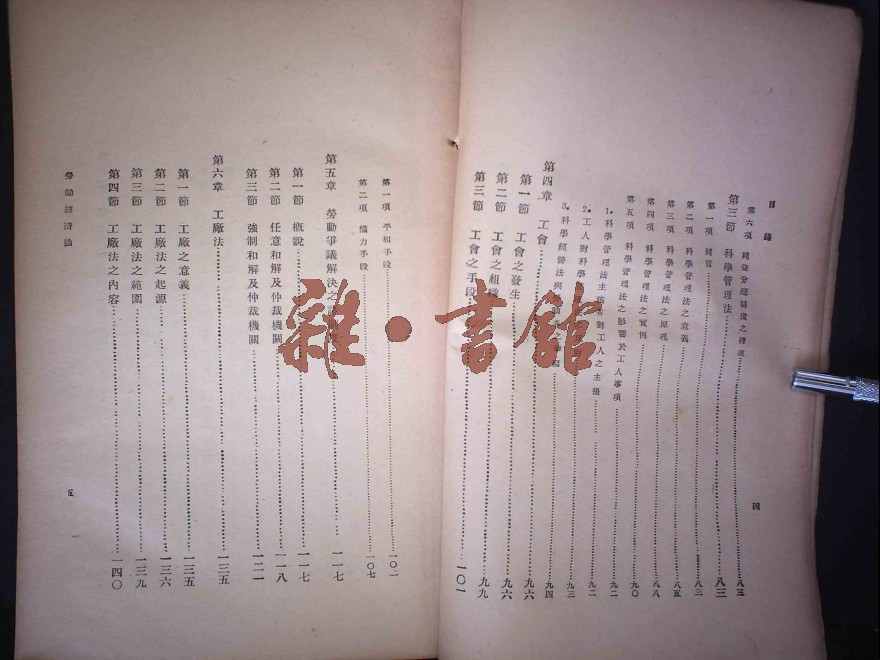 目錄
第六項 純益分 制度之 八三
第三節 科學管理法 八三
第一項 緒言 八三
第二項 科學管理法之意義 八三
第三項 科學管理法之原理 八五
第四項 科學管理法之實例 八八
第五項 科學管理法之影響於工人事項 九〇
1.科學管理法主 對工人之主張 九二
2.工人對科學 九二
3.科學經營法與 九三
第四章 工會 九四
第一節 工會之發生 九六
第二節 工會之組織 九六
第三節 工會之手段 九九
一〇一
四
第一項 平和手段 一〇一
第二項 權力手段 一〇七
第五章 勞動爭議解決之 一一七
第一節 概說 一一七
第二節 任意和解及仲裁機關 一一八
第三節 強制和解及仲裁機關 一二一
第六章 工廠法 一三五
第一節 工廠之意義 一三五
第二節 工廠法之起源 一三六
第三節 工廠法之範圍 一三九
第四節 工廠法之內容 一四〇
勞動經濟論
五
雜·書館